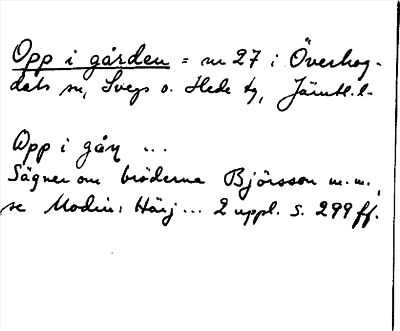 Opp i gården = nr 27 i Överhog-
dals sn, Svegs o. Hede tg, Jämtl. l.
Opp i går ...
Sägner om bröderna Björsson m.m.,
se Modin, Härj... 2 uppl. s. 299 ff.